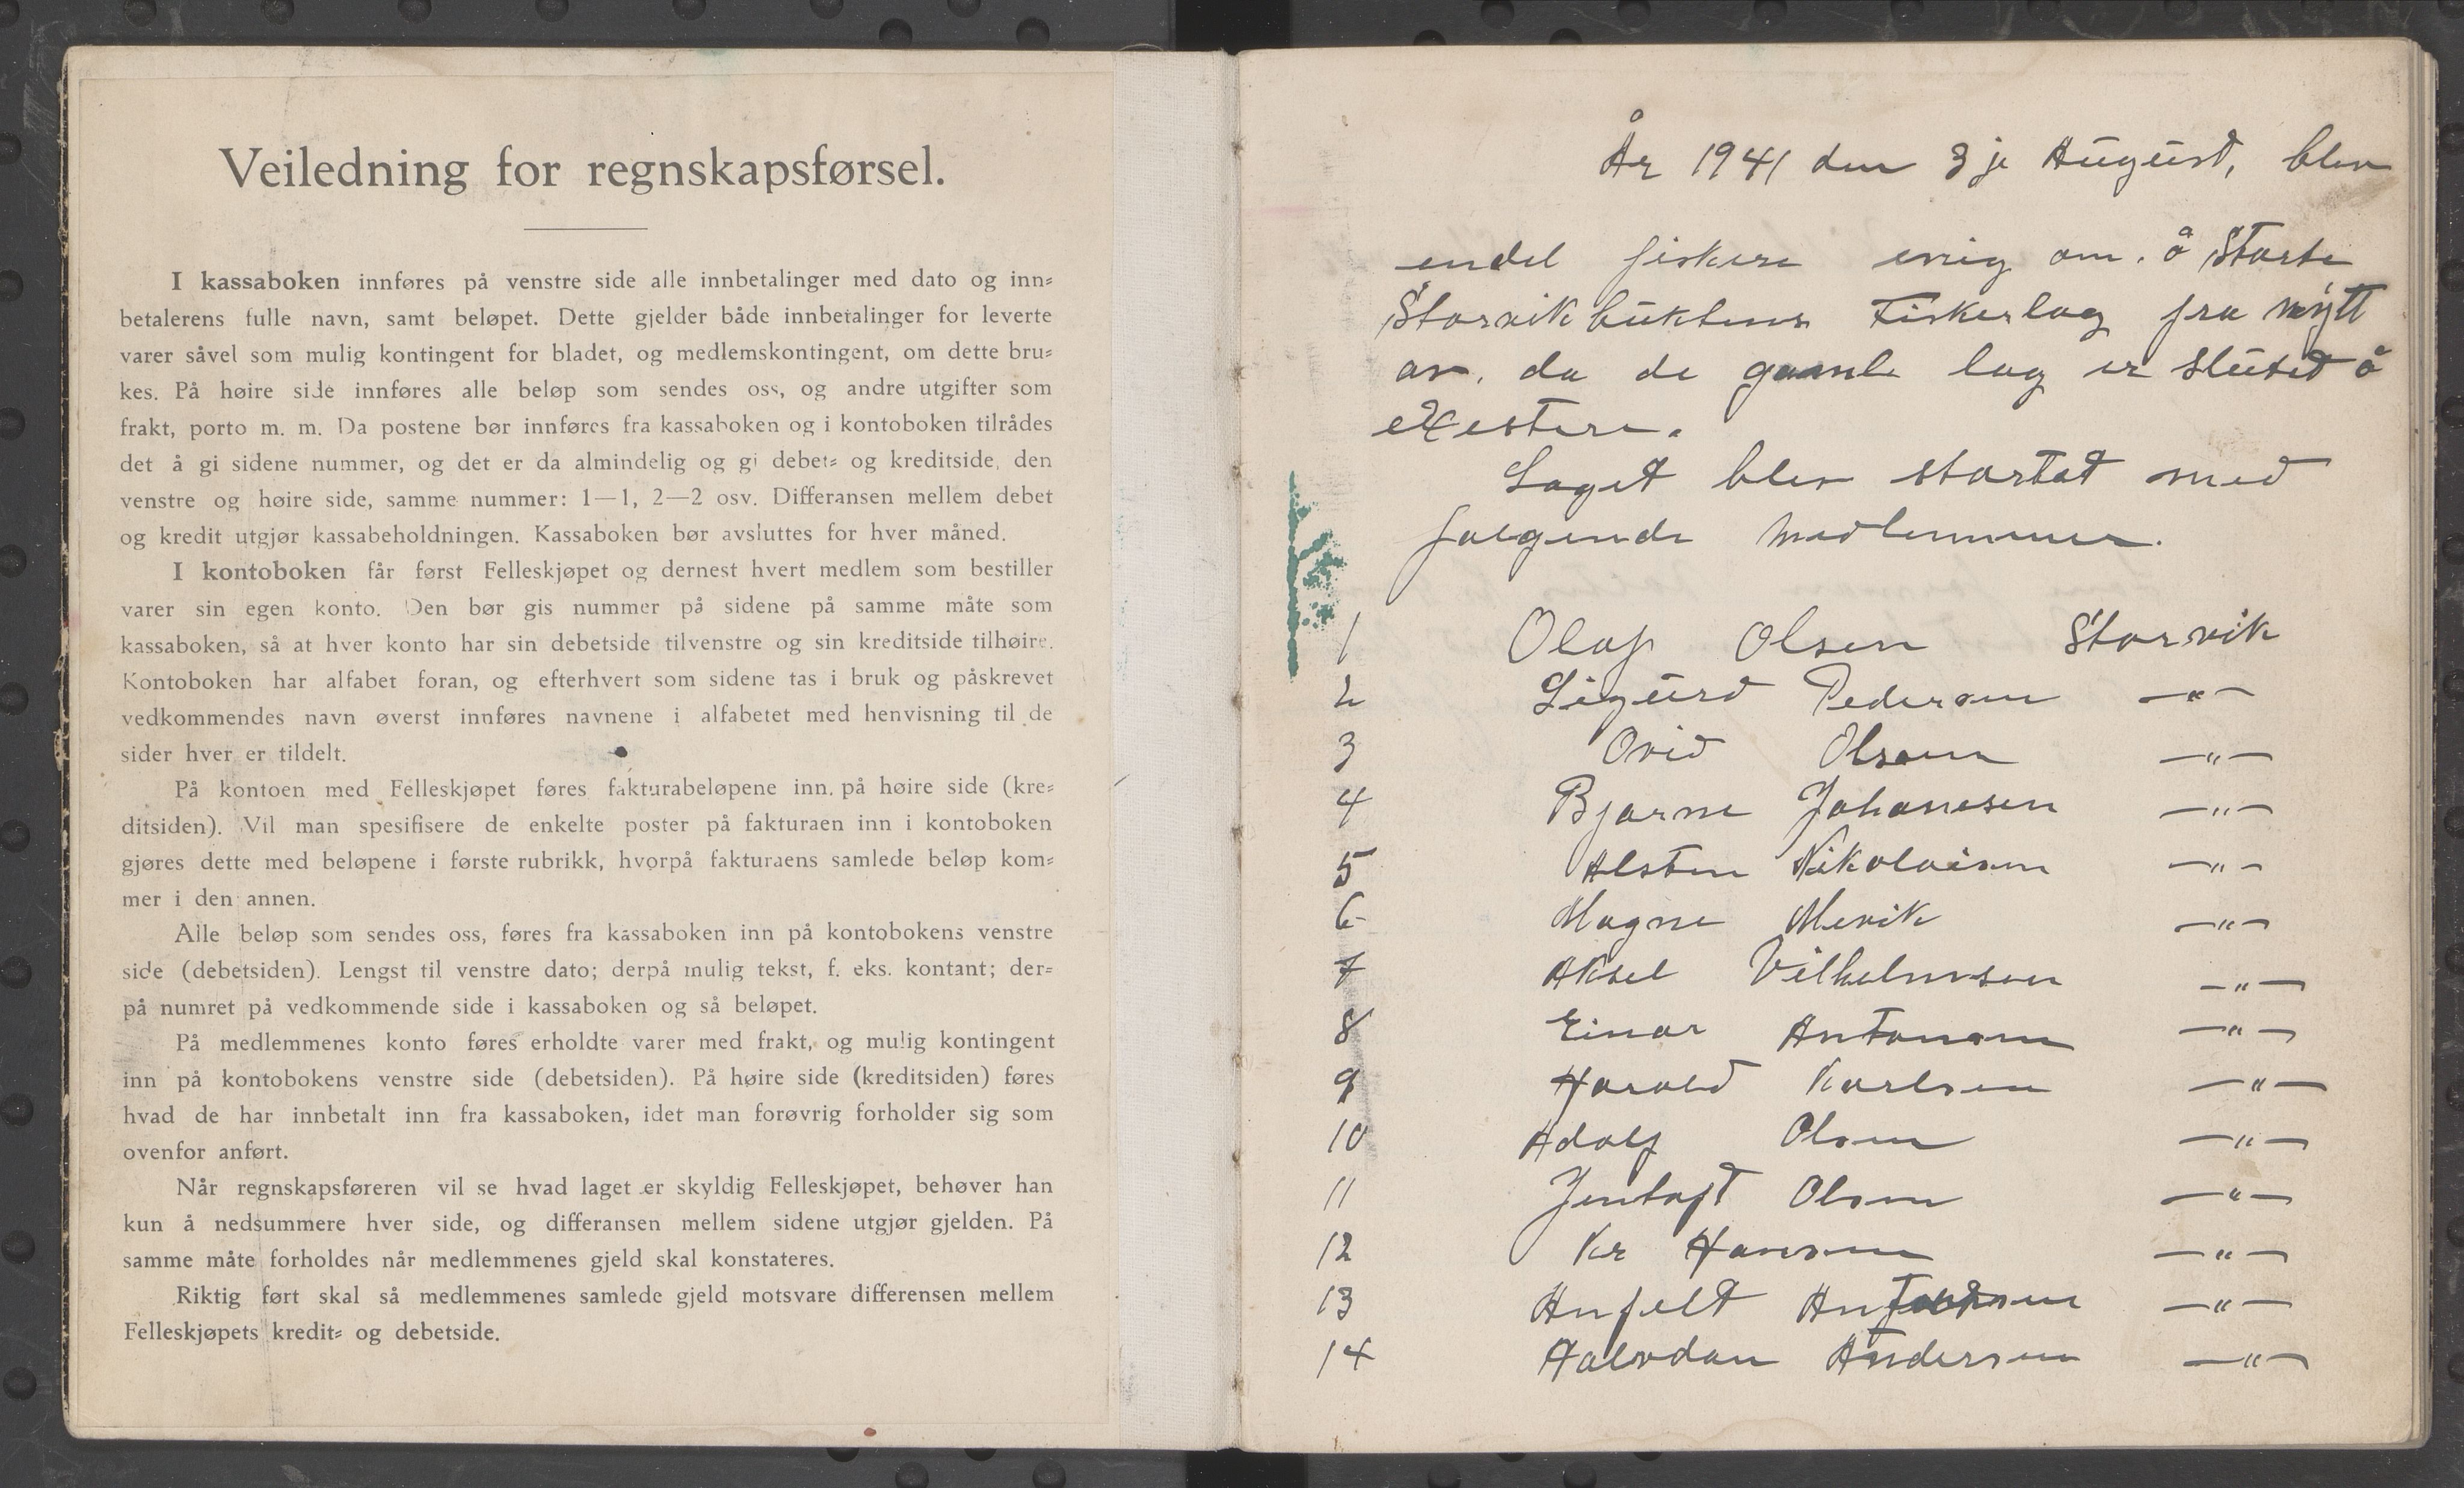 Veiledning for regnskapsførsel.
I kassaboken innføres på venstre side alle innbetalinger med dato og inn-
betalerens fulle navn, samt beløpet. Dette gjelder både innbetalinger for leverte
varer såvel som mulig kontingent for bladet, og medlemskontingent, om dette bru-
kes. På høire side innføres alle beløp som sendes oss, og andre utgifter som
frakt, porto m. m. Da postene bør innføres fra kassaboken og i kontoboken tilrådes
det å gi sidene nummer, og det er da almindelig og gi debet- og kreditside, den
venstre og høire side, samme nummer: 1—1, 2—2 osv. Differansen mellem debet
og kredit utgjør kassabeholdningen. Kassaboken bør avsluttes for hver måned.
I kontoboken får først Felleskjøpet og dernest hvert medlem som bestiller
varer sin egen konto. Den bør gis nummer på sidene på samme måte som
kassaboken, så at hver konto har sin debetside tilvenstre og sin kreditside tilhøire.
Kontoboken har alfabet foran, og efterhvert som sidene tas i bruk og påskrevet
vedkommendes navn øverst innføres navnene i alfabetet med henvisning til de
sider hver er tildelt.
På kontoen med Felleskjøpet føres fakturabeløpene inn. på høire side (kre-
ditsiden). Vil man spesifisere de enkelte poster på fakturaen inn i kontoboken
gjøres dette med beløpene i første rubrikk, hvorpå fakturaens samlede beløp kom-
mer i den annen.
Alle beløp som sendes oss, føres fra kassaboken inn på kontobokens venstre
side (debetsiden). Lengst til venstre dato; derpå mulig tekst, f. eks. kontant; der-
på numret på vedkommende side i kassaboken og så beløpet.
På medlemmenes konto føres erholdte varer med frakt, og mulig kontingent
inn på kontobokens venstre side (debetsiden). På høire side (kreditsiden) føres
hvad de har innbetalt inn fra kassaboken, idet man forøvrig forholder sig som
ovenfor anført.
Når regnskapsføreren vil se hvad laget er skyldig Felleskjøpet, behøver han
kun å nedsummere hver side, og differansen mellem sidene utgjør gjelden. På
samme måte forholdes når medlemmenes gjeld skal konstateres.
Riktig ført skal så medlemmenes samlede gjeld motsvare differensen mellem
Felleskjøpets kredit- og debetside.
År 1941 den 3je August, blev
endel fiskere enig om. å Starte
Storvikbuktens Fiskerlag fra nytt
av. da de gamle lag er sluted å
eksestere.
Laget blev startet med
følgende medlemmer.
1 Olaf Olsen Storvik
2 Sigurd Pedersen —"—
3 Ovid Olsen —"—
4 Bjarne Johansen —"—
5 Alsten Nikolaisen —"—
6 Magne Mevik —"—
7 Aksel Vilhelmsen —"—
8 Einar Antonsen —"—
9 Harald Karlsen —"—
10 Adolf Olsen —"—
11 Jentoft Olsen —"—
12 Kr Hansen —"—
13 Anfelt —"—
14 Halvdan Andersen —"—